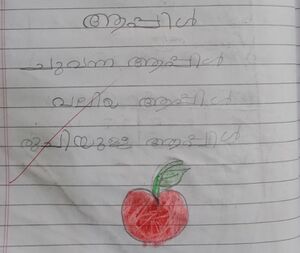 ആപ്പിൾ
ചുവന്ന ആപ്പിൾ
വലിയ ആപ്പിൾ
രുചിയുള്ള ആപ്പിൾ